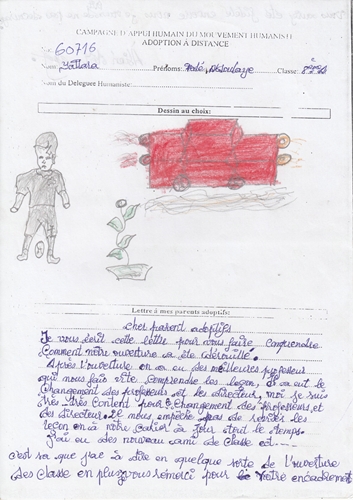 CAMPAGNE D'APPUI HUMAIN DU MOUVEMENT HUMANISTE
ADOPTION À DISTANCE
N° 60716
Nom: Yattara Prénoms: Abdoulaye Classe: 8ème
Nom du Déléguée Humaniste:
Dessin au choix:
Lettre à mes parents adoptifs:
cher parent adoptifs
Je vous écrit cette lettre pour vous faire comprendre
Comment notre ouverture sa été dérouillé.
Après l'ouverture on a eu des meilleures professeur
qui nous fais vite comprendre les leçon, il ya eut le
changement des professeurs et les directeur, moi je suis
très très content pour le changement des professeurs et
des directeur. Ce nous empêche pas de revisés les
leçon on à notre cahier à jour tout le temps.
J'ai eu des nouveau ami de classe est
c'est sa que j'ai à dire en quelque sorte de l'ouverture
des classe en plus je vous remerci pour votre encadrement